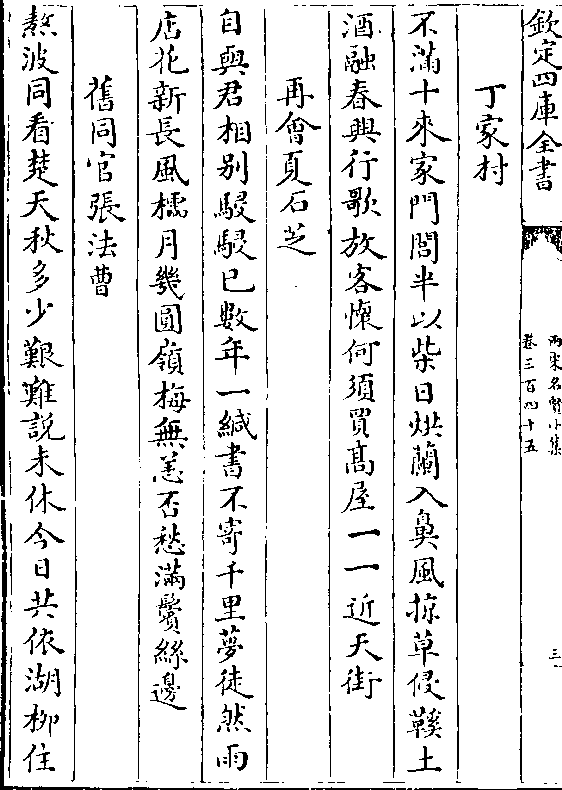 欽定四庫全書
兩宋名賢小集
卷三百四十五
三
丁家村
不滿十來家門閭半以柴日烘蘭入鼻風掠草侵鞵土
酒融春興行歌放客懷何須買髙屋一一近天街
再會夏石芝
自與君相别駸駸已數年一緘書不寄千里夢徒然雨
店花新長風檽月幾圓嶺梅無恙否愁滿鬢絲邊
舊同官張法曹
熬波同看楚天秋多少艱難説未休今日共依湖柳住